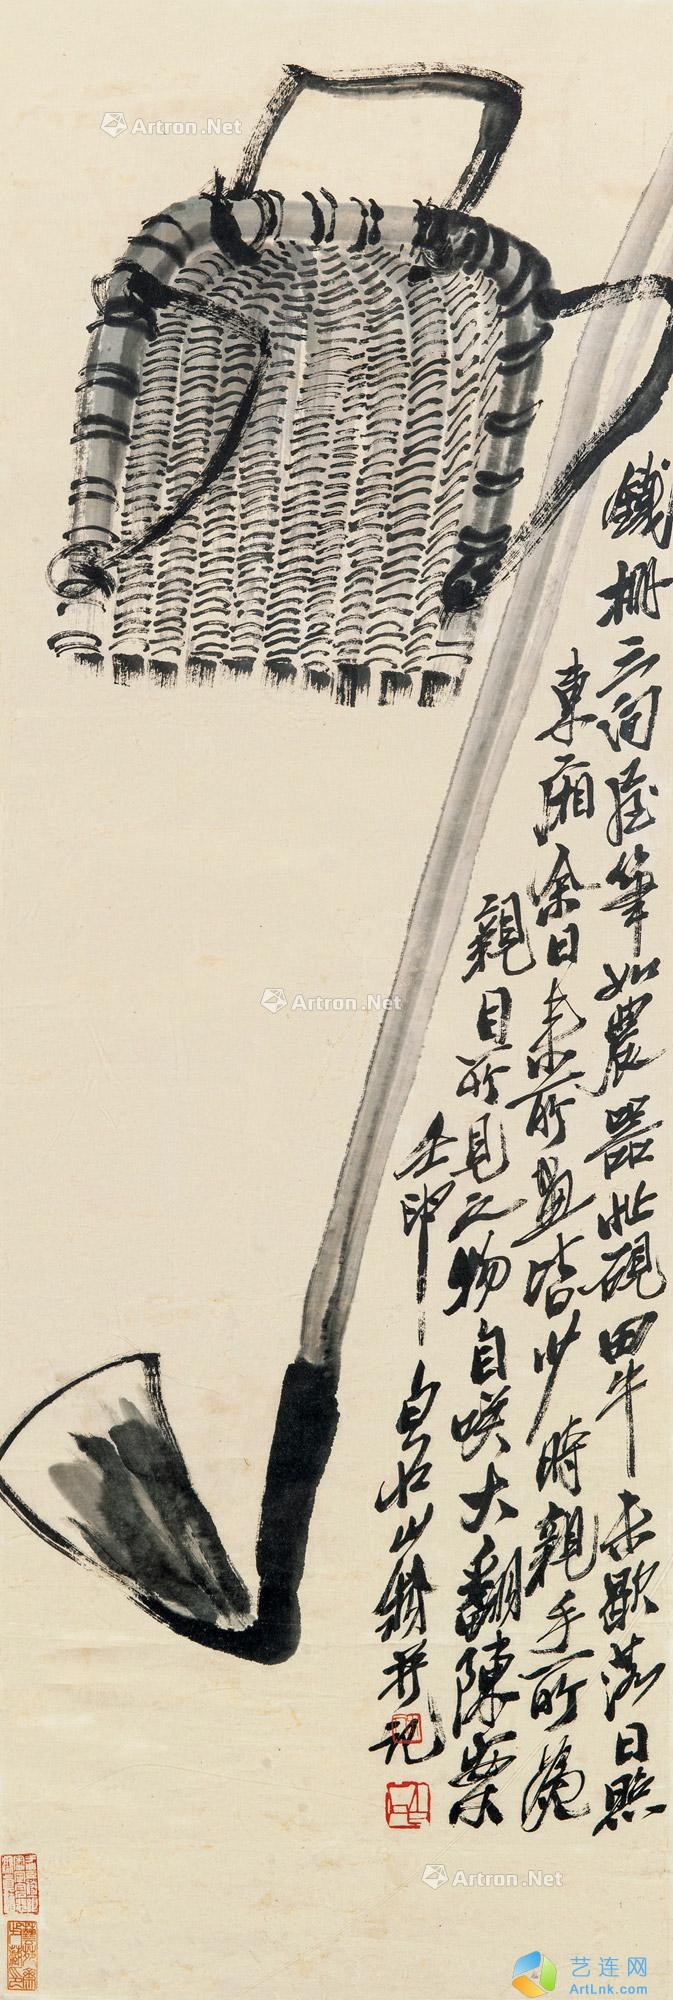 鐵柵三间屋筆如農器忙硯田牛未歇落日照
東廂余日来所畫皆少時親手所為
親目所見之物自咲大翻陳案
壬申白石山翁并記
Artron.Net
Artron.Net
Artron.Net
艺连网
ArtLnk.com